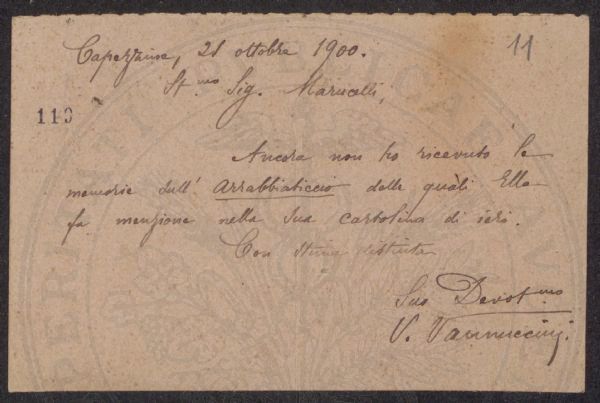 Capezzana, 21 ottobre 1900.
11
St.mo Sig. Marucelli,
110
Ancora non ho ricevuto le
memorie sull' Arrabbiaticcio delle quali Ella
fa menzione nella sua cartolina di ieri.
Con stima distinta
Suo Devot.mo
V. Vannuccini.